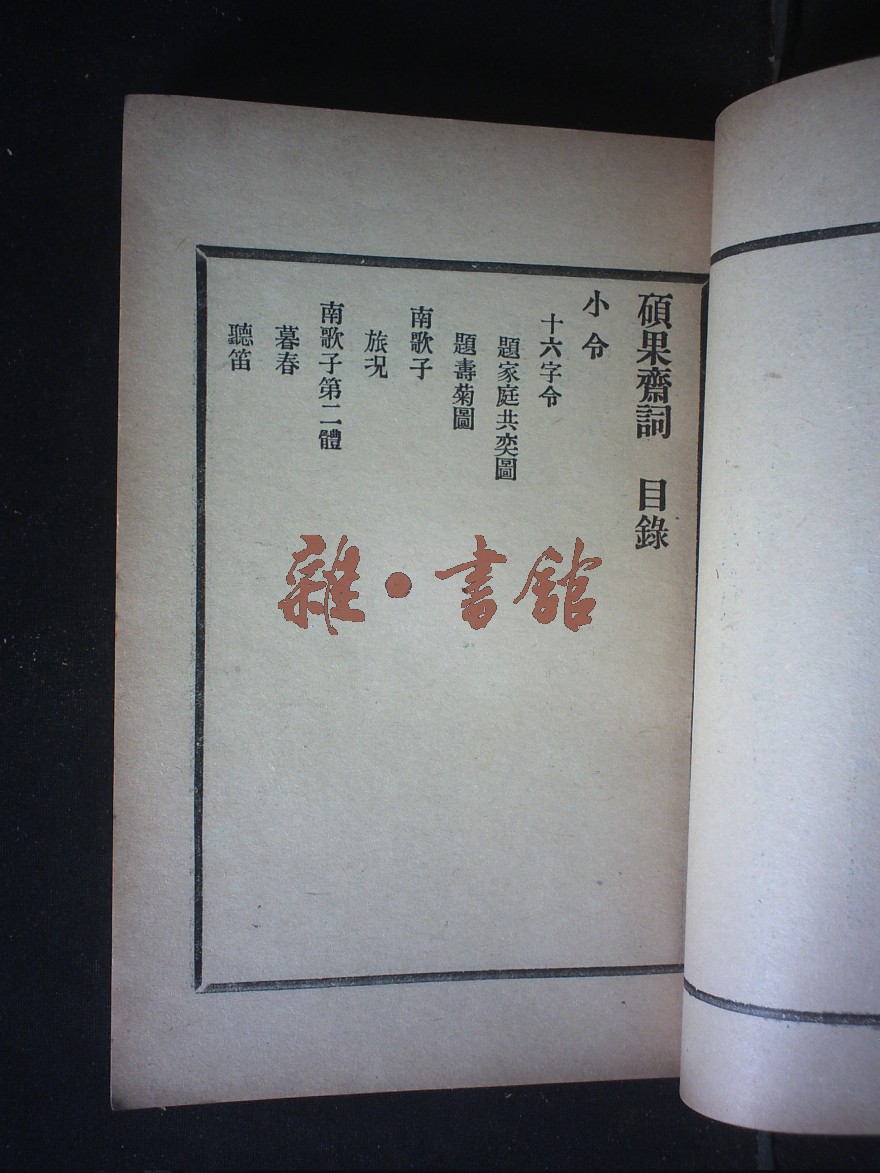 碩果齋詞　目錄
小令
十六字令
題家庭共奕圖
題壽菊圖
南歌子
旅況
南歌子第二體
暮春
聽笛
雜·書館